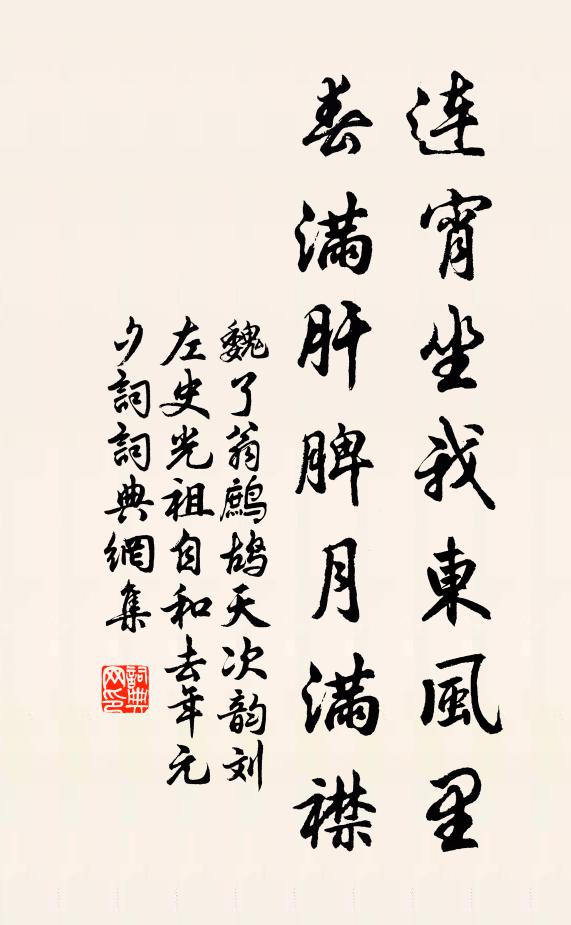 連宵坐我東風里
春滿肝脾月滿襟
魏了翁鷓鴣天次韵刘
左史光祖自和去年元
夕詞詞典網集
詞典网印